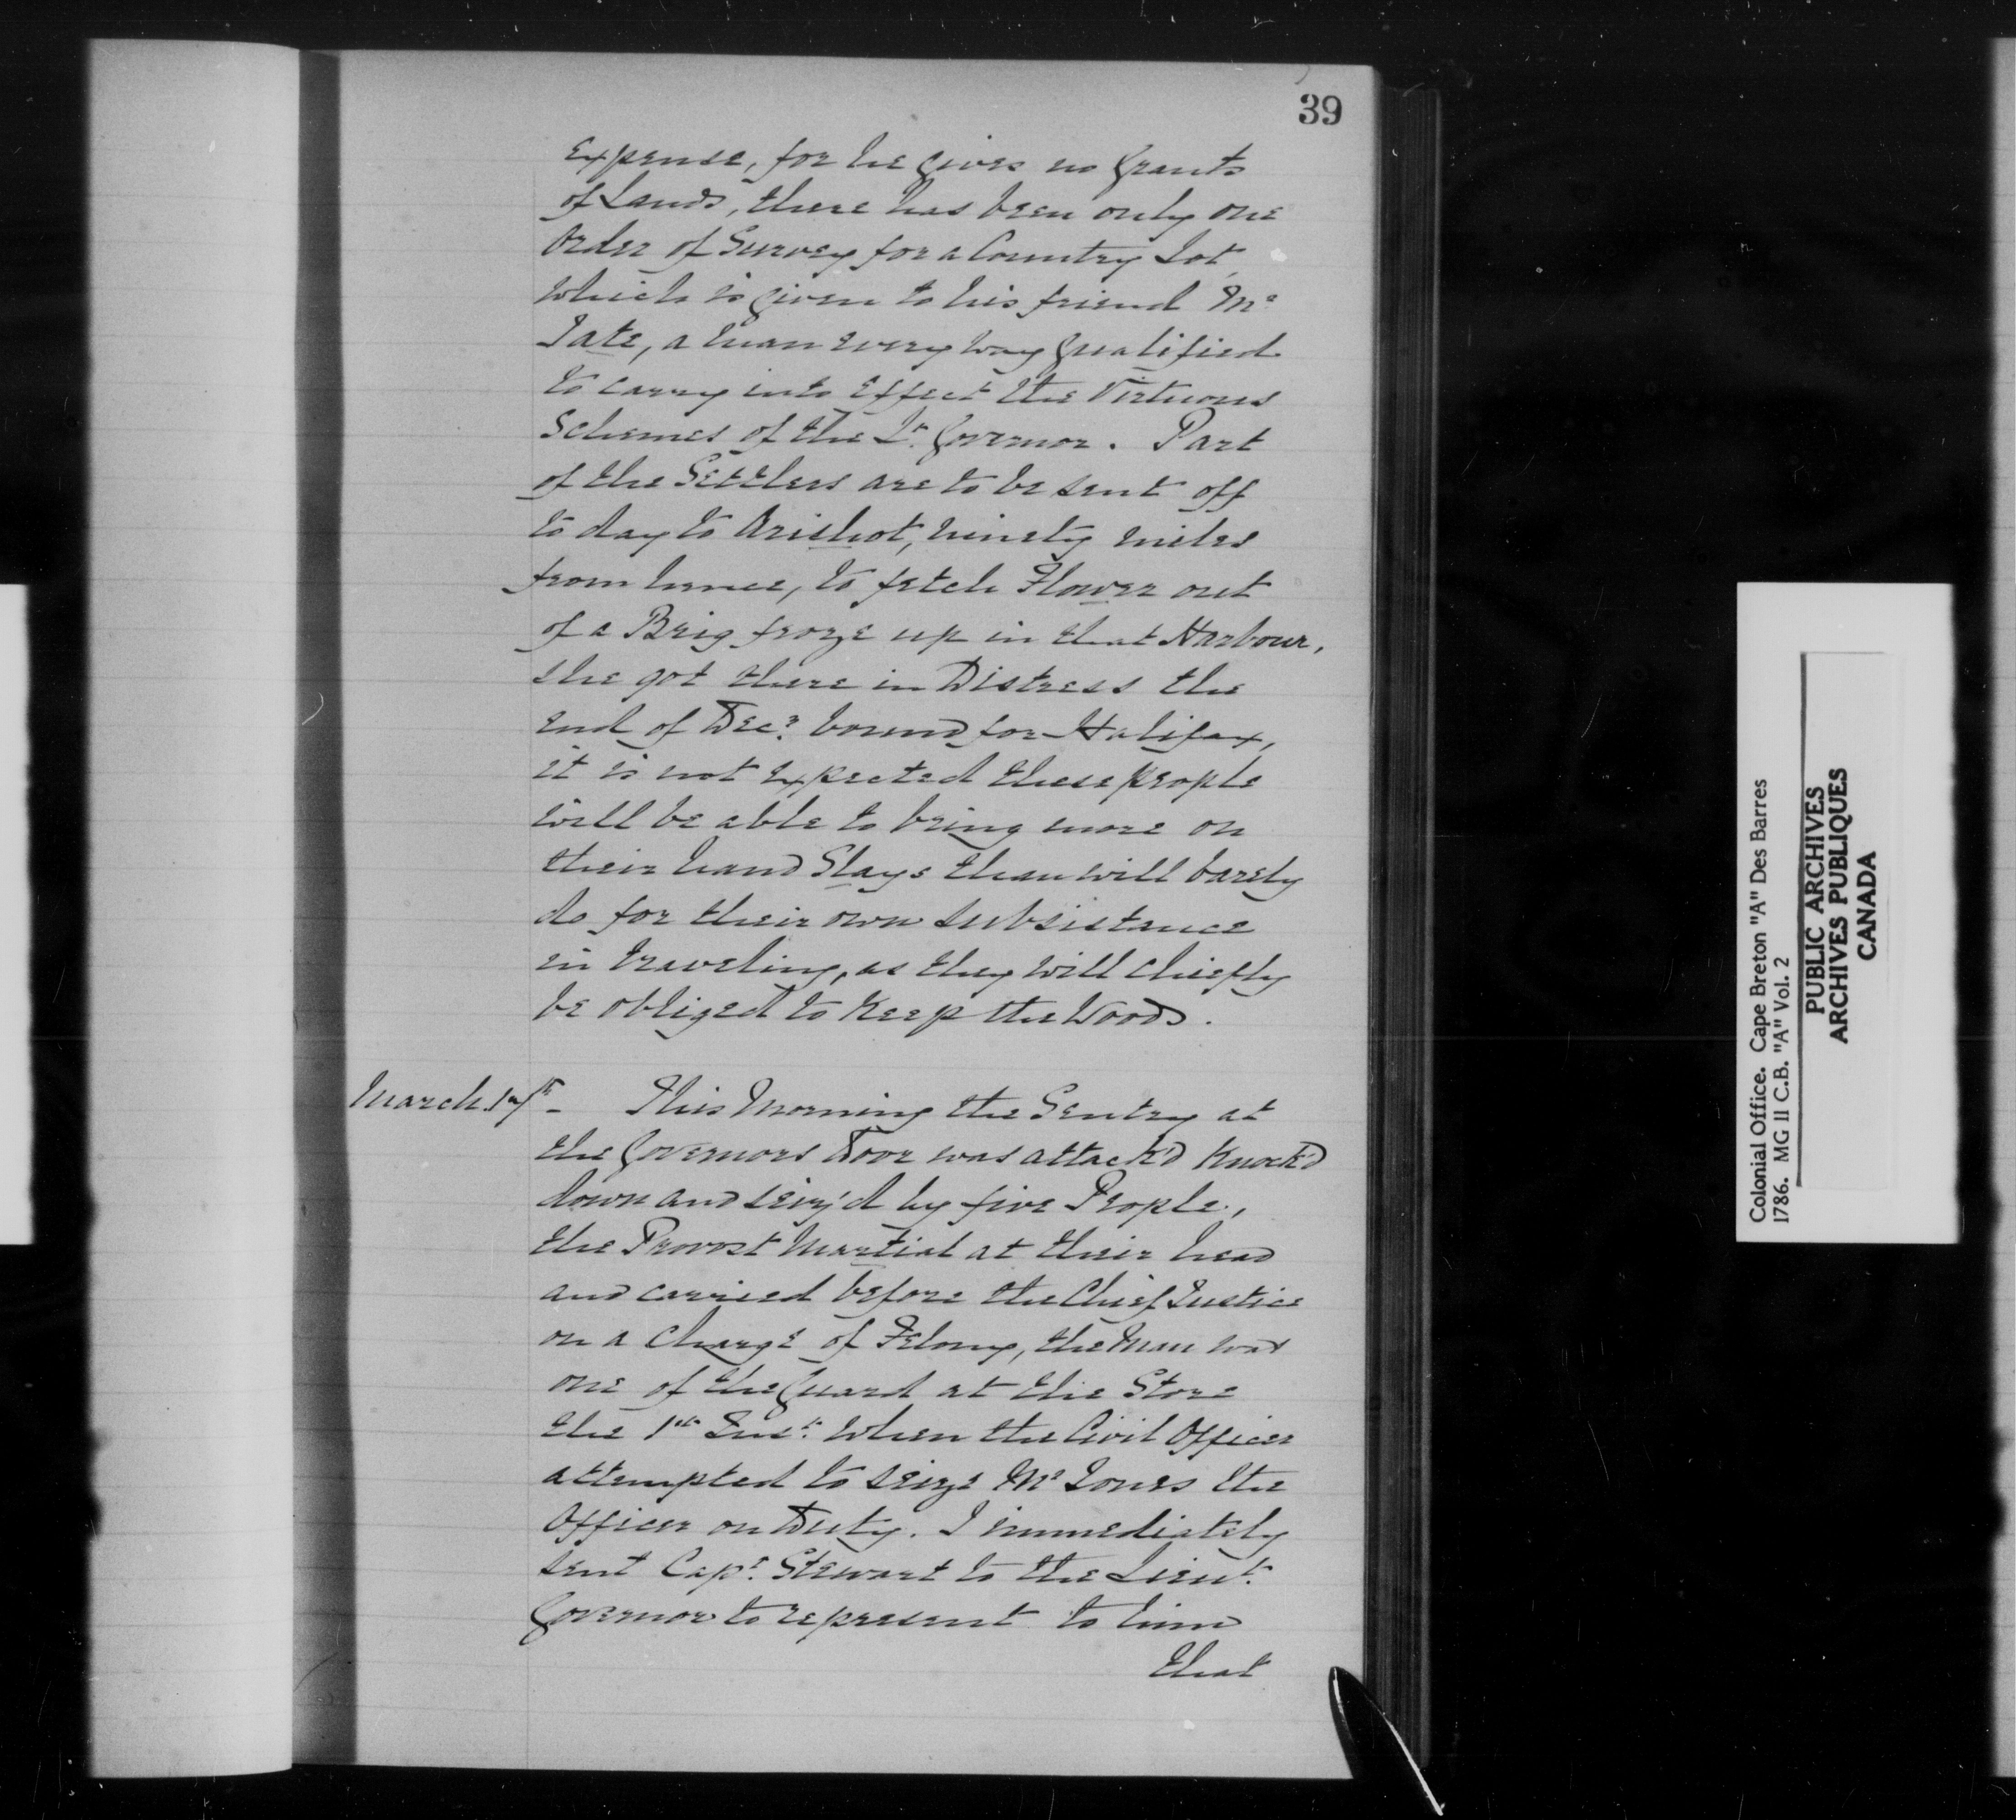 39
Expense, for he gives no Grants
of Lands, there has been only one
Order of Survey for a Country Lot,
which is given to his friend Mr
Tate, a man every way qualified
to carry into Effect the Virtuous
Schemes of the Lt. Governor. Part
of the Settlers are to be sent off
to day to Arishot, ninety miles
from hence, to fetch Flower out
of a Brig froze up in that Harbour,
she got there in Distress the
end of Decr. bound for Halifax,
it is not Expected these people
will be able to bring more on
their hand Slays than will barely
do for their own subsistance
in traveling, as they will chiefly
be obliged to keep the Woods.
March 17th - This Morning the Sentry at
the Governors Door was attack'd knock'd
down and seiz'd by five People,
the Provost Martial at their head
and carried before the Chief Justice
on a Charge of Felony, the Man was
one of the Guard at the Store
the 1st Inst. when the Civil Officer
attempted to seize Mr Jones the
Officer on Duty. I immediately
sent Capt. Stewart to the Lieut.
Governor to represent to him
that
Colonial Office. Cape Breton "A" Des Barres
1786. MG II C.B. "A" Vol. 2
PUBLIC ARCHIVES
ARCHIVES PUBLIQUES
CANADA